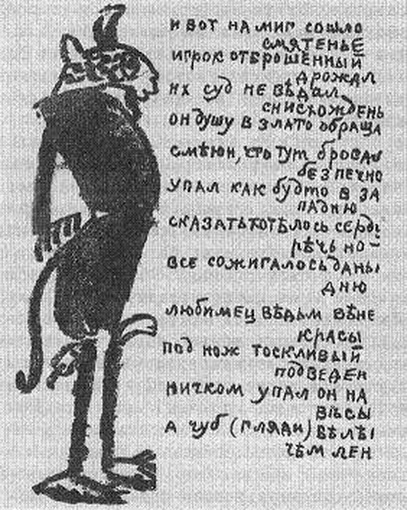 и вот на миг сошло
смятенье
игрок отброшенный
дрожал
их суд не вѣдал
снисхожденья
он душу в злато обраща
смѣюн, что тут бросал
безпечно
упал как будто в за
падню
сказать хотѣлось сердц
рѣчь но-
все сожигалось даны
дню
любимец вѣдьм вѣне
красы
под нож тоскливый
подведен
ничком упал он на
вѣсы
а чуб (гляди) вѣлѣ
чѣм лен